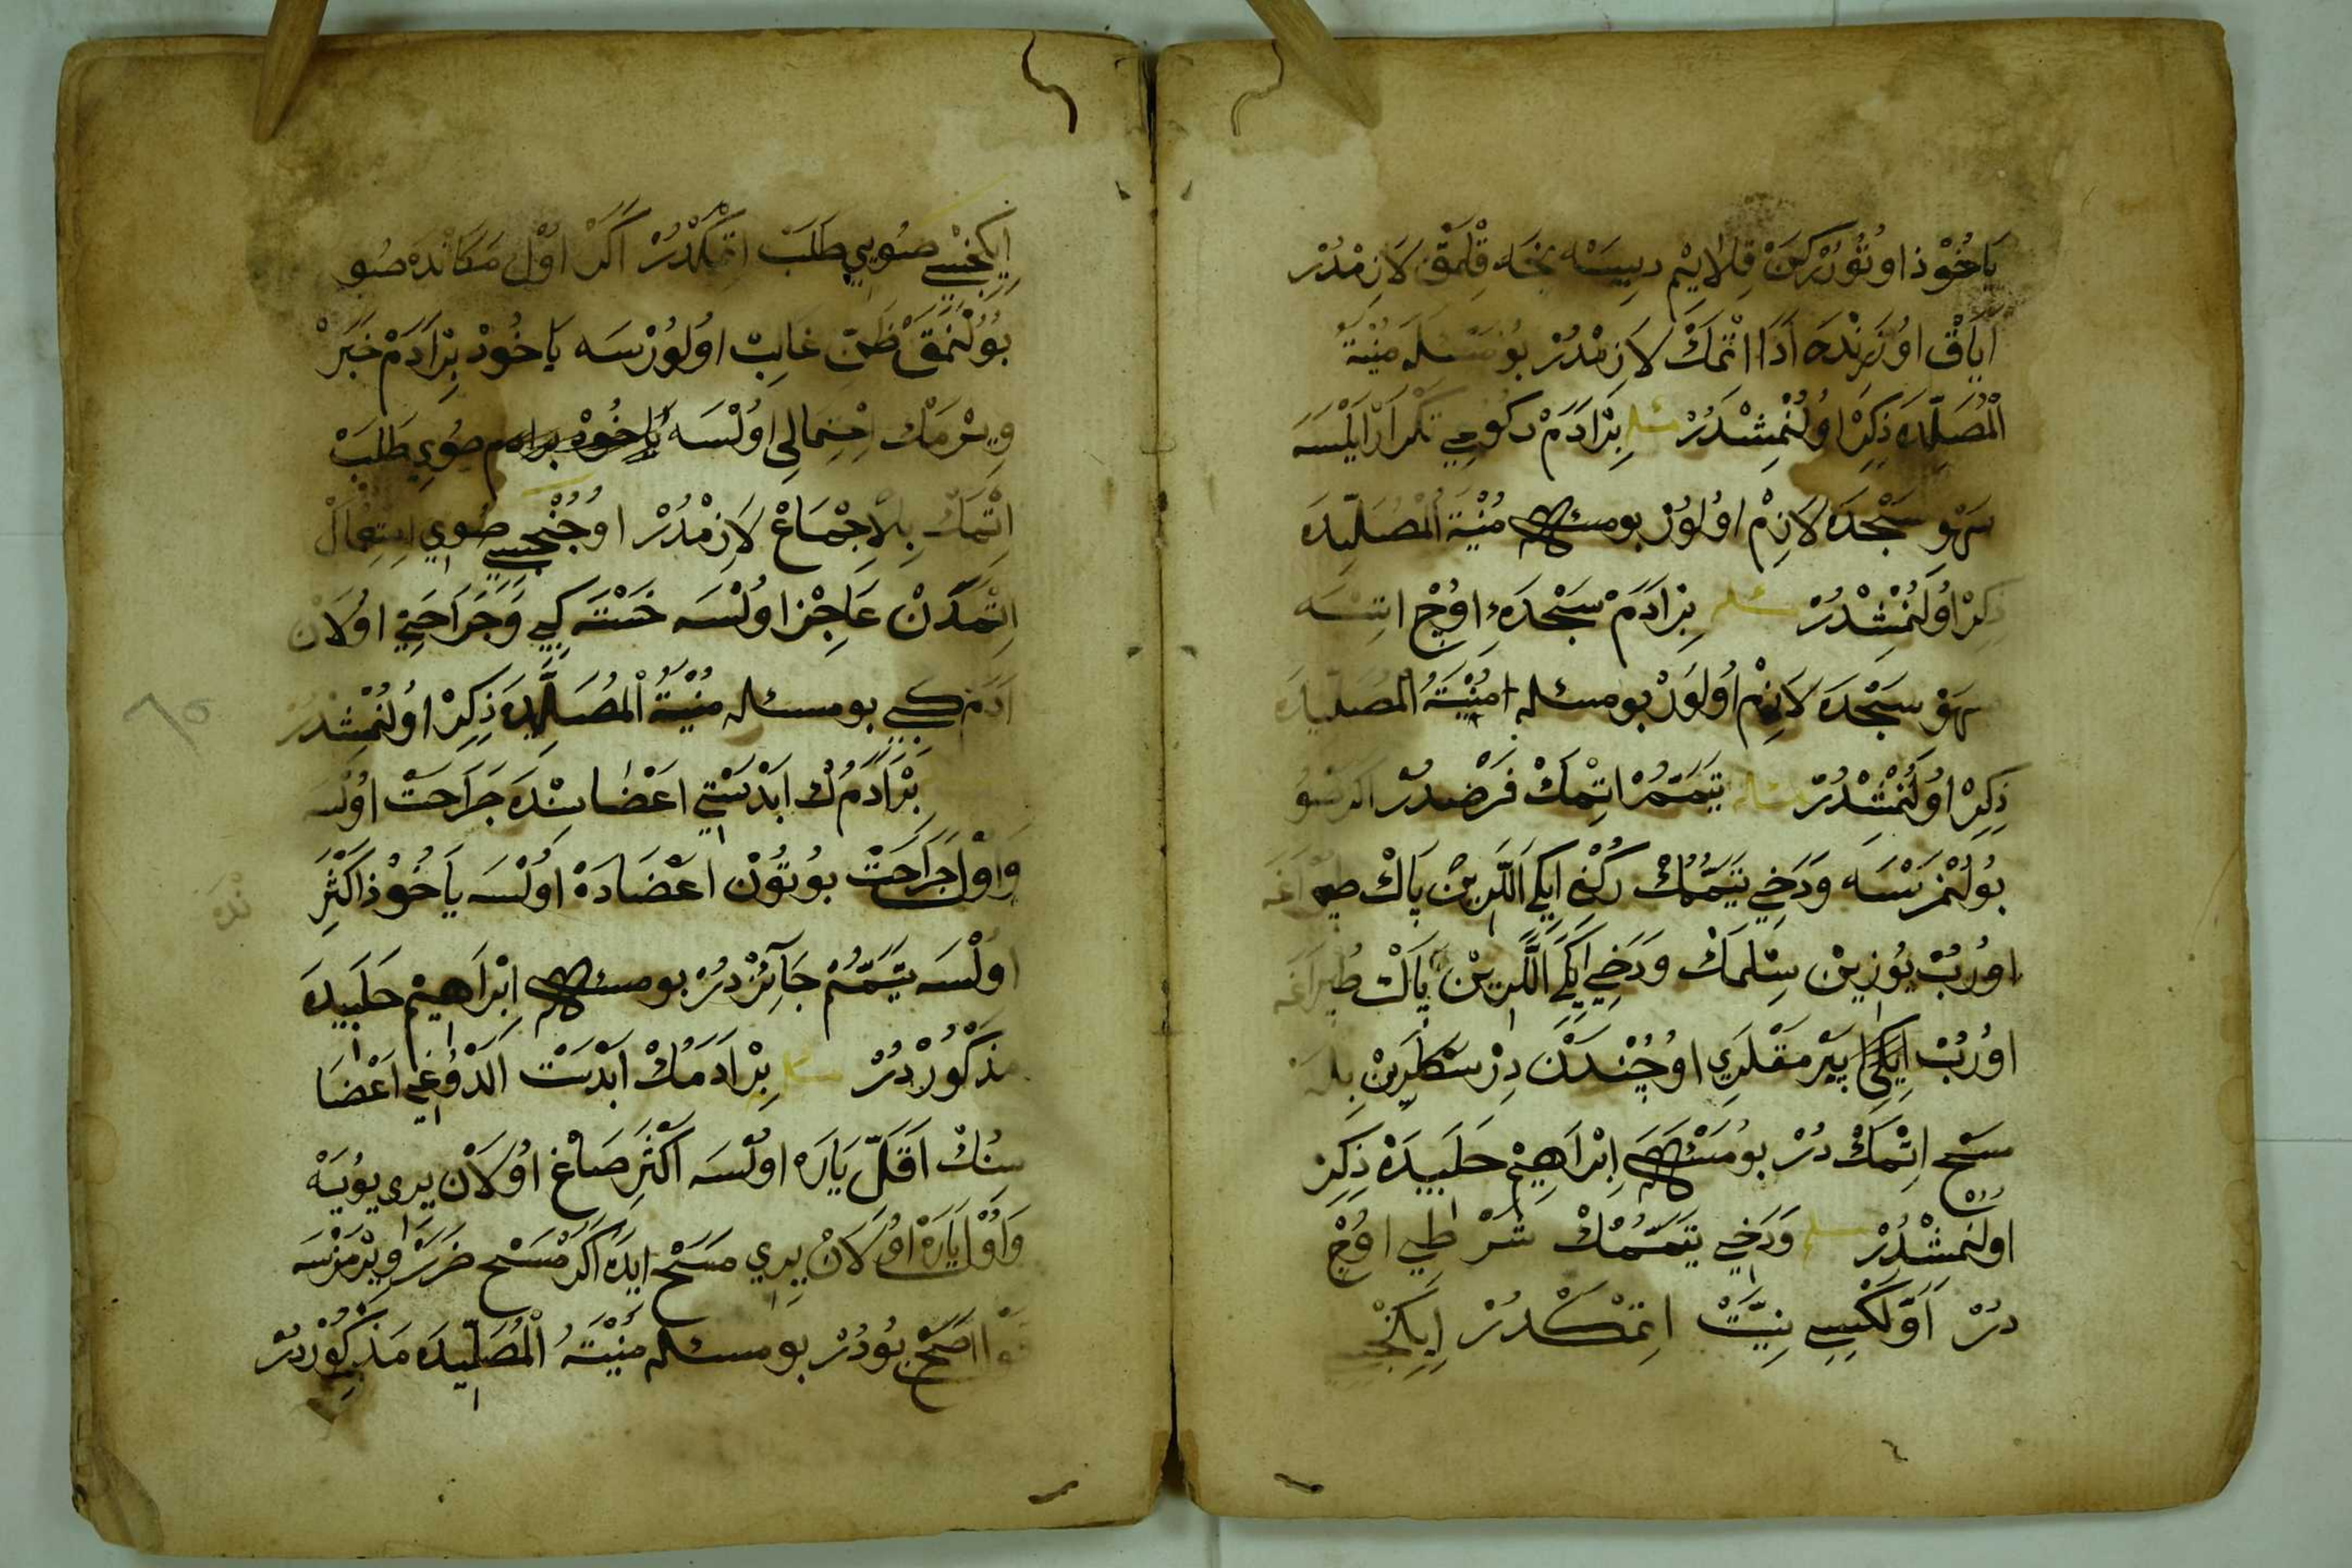 يَاخُوْذ اوتُوْرُرْكَنْ قِلَايِمْ دِيسَه يَنَه قِلْمَقْ لَازِمْدُرْ
اَيَاقْ اوُزَرِنْدَه اَدَا اتْمَكْ لَازِمْدُرْ بُو مَسْئَلَه مُنْيَةُ
الْمُصَلِّيدَه ذِكِرْ اوُلُنْمِشْدُرْ مسئله بِرْ اَدَمْ رُكُوعِي تَكْرَارْ اَيْلَسَه
سَهْوِ سَجْدَه لَازِمْ اوُلوُرْ بو مسئله مُنْيَةُ الْمُصَلِّيدَه
ذِكِرْ اوُلُنْمِشْدُرْ مسئله بِرْ اَدَمْ سَجْدَهءِ اوُجْ اتسَه
سَهْوْ سَجْدَه لَازِمْ اوُلوُرْ بو مسئله مُنْيَةُ الْمُصَلِّيدَه
ذِكِرْ اوُلُنْمِشْدُرْ مسئله تَيَمُّمْ اتِمْكْ فَرْضدُرْ اكر صُو
بُولُنْمَزْسَه وَدَخِي تَيَمُّمُكْ رُكْنِ ايكي اَللَّرِينْ پَاكْ طپراغه
اوُرُبْ يُوزِينْ سِلْمَكْ وَدَخِي ايكي اَللَّرِينْ پَاكْ طُپراغَه
اوُرُبْ ايكي بَرْمَقْلَرِي اوُجُنْدَنْ دِرْسَكْلَرِينْ بِلَه
مَسَحْ اتِمْكْ دُرْ بُو مَسْئَلَه اِبْرَاهِيمْ حَلَبِيدَه ذِكِرْ
اولُنْمِشْدُرْ مسئله وَدَخِي تَيَمُّمُكْ شَرْطِي اوُجْ
دُرْ اَوَّلْكِسِي نِيَّتْ اتِمْكْدُرْ اِيكِنْجِسِي
اِيكِنْجِسِي صُويي طَلَبْ اتِمْكْدُرْ اَكَرْ اوُلْ مَكَانْدَه صُو
بُولُنْمَقْ ظَنِّ غَالِبْ اوُلوُرْسَه يَاخُودْ بِرْ اَدَمْ خَبَرْ
وِيرْمَكْ اِحْتِمَالِي اوُلْسَه صُويِ طَلَبْ
اتْمَكْ بِلْاِجْمَاعْ لَازِمْدُرْ اوُجُنْجُسِي صُويي اِسْتِعْمَالْ
اتْمَكْدَنْ عَاجِزْ اوُلْسَه خَسْتَه كِبِي وَجَرَاحَتِي اوُلَانْ
اَدَمْ كِبِي بو مسئله مُنْيَةُ الْمُصَلِّيدَه ذِكِرْ اوُلُنْمِشْدُرْ
بِرْ اَدَمُكْ اَبْدَسْتِي اَعْضَاسِنْدَه جَرَاحَتْ اوُلْسَه
وَاوُلْ جَرَاحَتْ بوُتُونْ اعْضَادَهْ اوُلْسَه يَاخُوْذ اَكْثَرِ
اوُلْسَه تَيَمُّمْ جَآئِزْدُرْ بو مسئله اِبْرَاهِيمْ حَلَبِيدَه
مَذْكُورْدُرْ مسئله بِرْ اَدَمُكْ اَبْدَسْتْ الَدُوغِي اَعْضَا
سِنُكْ اَقَلِّ يَارَه اوُلْسَه اَكْثَرِ صَاغْ اوُلَانْ يِرِي يُويَهْ
وَاوُلْ يَارَهْ اوُلَانْ يِرِي مَسَحْ ايدَه اَكَرْ مَسَحْ ضَرَرْ وِيرْمَزْسَه
اصَحّ بُودُرْ بو مسئله مُنْيَةُ الْمُصَلِّيدَه مَذْكُورْدُرْ